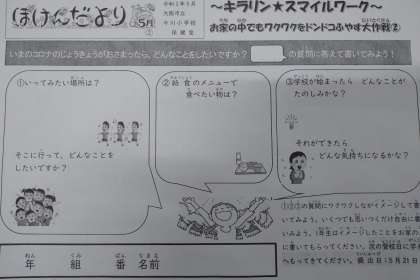 ほけんだより
5月
②
令和2年5月
保健室
～キラリン★スマイルワーク～
お家の中でもワクワクをドンドコふやす大作戦②
いまのコロナのじょうきょうがおさまったら、どんなことをしたいですか？
の質問に答えて書いてみよう！
①いってみたい場所は？
そこに行って、どんなことを
したいですか？
②給食のメニューで
食べたい物は？
③学校が始まったら、どんなことが
たのしみかな？
それができたら
、どんな気持ちになるかな？
①②③の質問にワクワクしながらイメージして書
いてみよう。いくつでも思いつくだけ自由に書
いてみよう。1年生はイメージしたことをお家の
に書いてもらってください。次の登校日に学校
へもってきてください。提出日：5月21日
年　組　番　名前